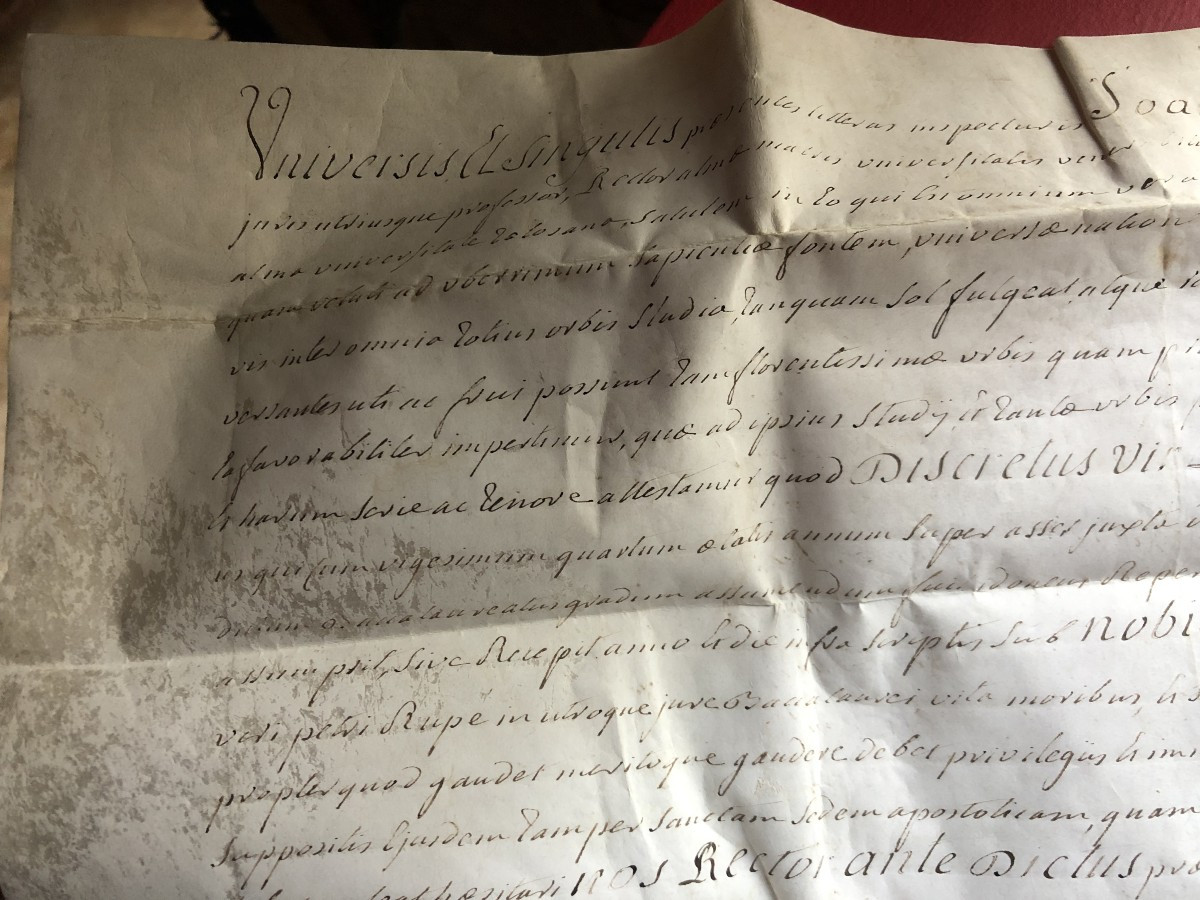 Universis Et Singulis præsentes litteras inspecturis Joa
juris utriusque professor, Rector almæ matris universitatis
alma universitate tolosana, Salutem in Eo qui Est omnium vera
quam velut ad uberrimum Sapientiæ fontem, universæ nation
vis inter omnia totius orbis Studia, tanquam Sol fulgeat, atque
versantes uti ac frui possunt tam florentissimæ urbis quam
favorabiliter impertimur, quæ ad ipsius Studij, Et tantæ urbis
Et harum Serie ac tenore attestamur quod Discretus Vir
us qui cum vigesimum quartum ætatis annum Super asset juxta
dictum Baccalaureatus gradum assumendum fuit idoneus Reper
assumpsit, Sive Recepit anno Et die infra Scriptis Sub Nobi
viri petri Rupé in utroque jure Baccalaurei, vita moribus, Et
propter quod gaudet meritoque gaudere debet privilegijs Et im
Suppositis Ejusdem tam per Sanctam Sedem apostolicam, quam
hæsitari NOS Rector ante Dictus